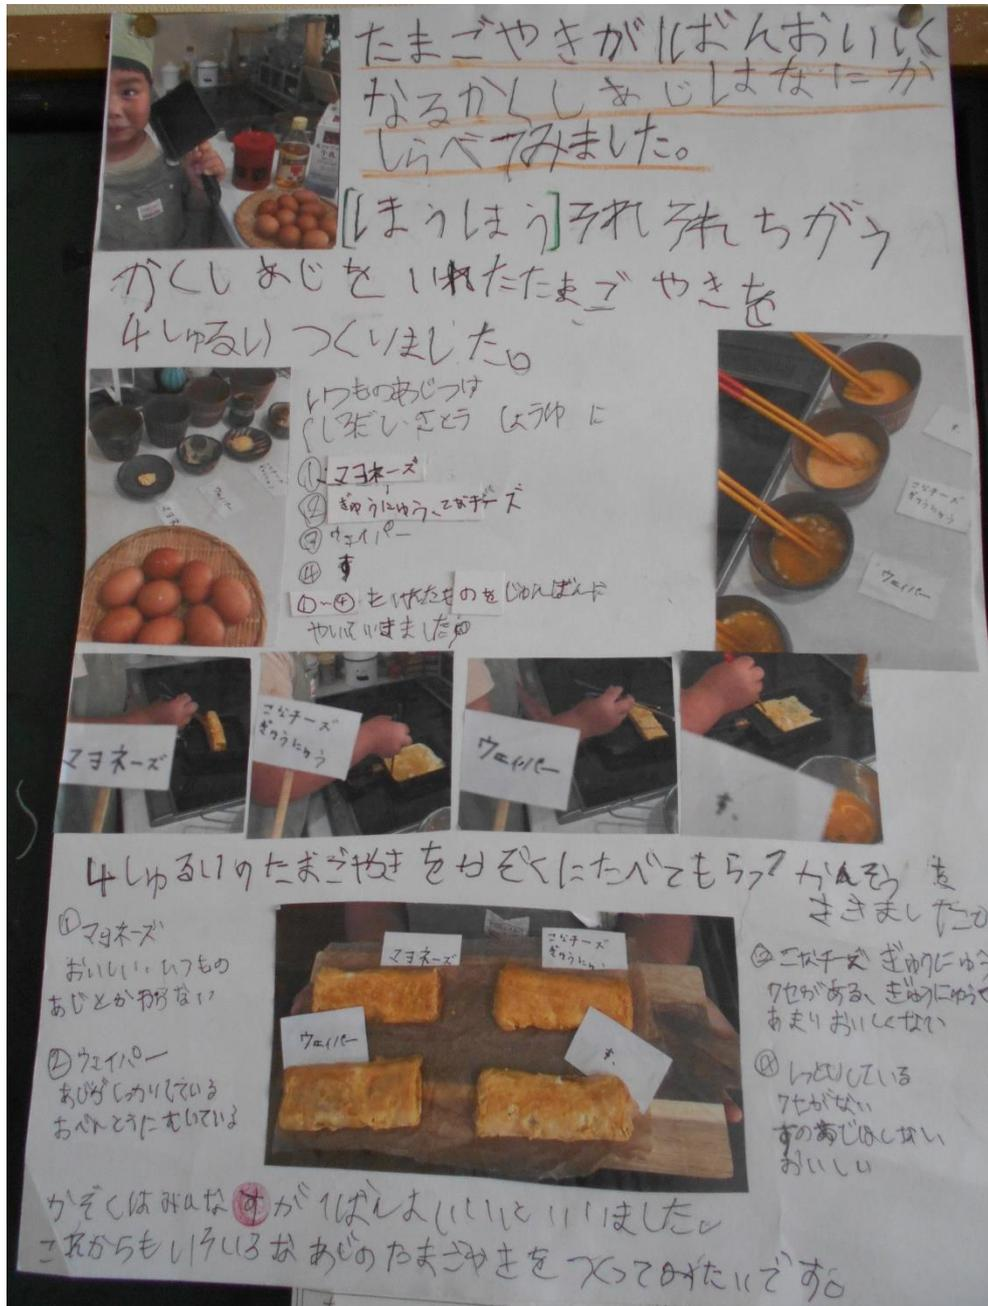 たまごやきが1ばんおいしく
なるかくしあじはなにか
しらべてみました。
[ほうほう]それぞれちがう
かくしあじを いれたたまご やきを
4しゅるい つくりました。
いつものあじつけ
しろだし、さとう しょうゆ に
① マヨネーズ
② ぎゅうにゅう、こなチーズ
③ ウェイパー
④ す
①～④ をいれたものをじゅんばんに
やいていきました。
マヨネ
す、
こなチーズ
ぎゅうにゅう
ウェイパー
マヨネーズ
こなチーズ
ぎゅうにゅう
ウェイパー
す、
4しゅるいのたまごやきをかぞくにたべてもらって かんそう を
ききました。
① マヨネーズ
おいしい、いつもの
あじとかわらない
② ウェイパー
あじがしっかりしている
おべんとうにむいている
マヨネーズ
こなチーズ
ぎゅうにゅう
ウェイパー
す、
こなチーズ ぎゅうにゅう
クセがある、ぎゅうにゅうで
あまりおいしくない
④ しっとりしている
クセがない
すのあじはしない
おいしい
かぞくはみんな す が 1ばんよいいといいました。
これからもいろいろなあじのたまごやきを つくってみたいです。